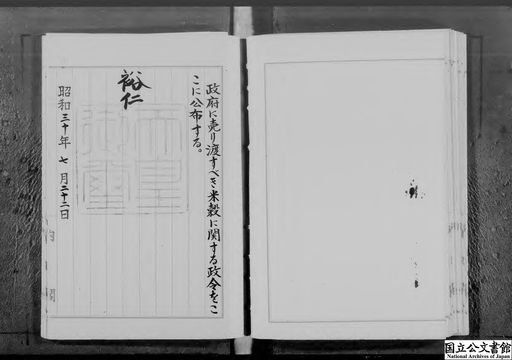 政府に売り渡すべき米穀に関する政令をこ
こに公布する。
裕仁
昭和三十年七月二十二日
国立公文書館
National Archives of Japan